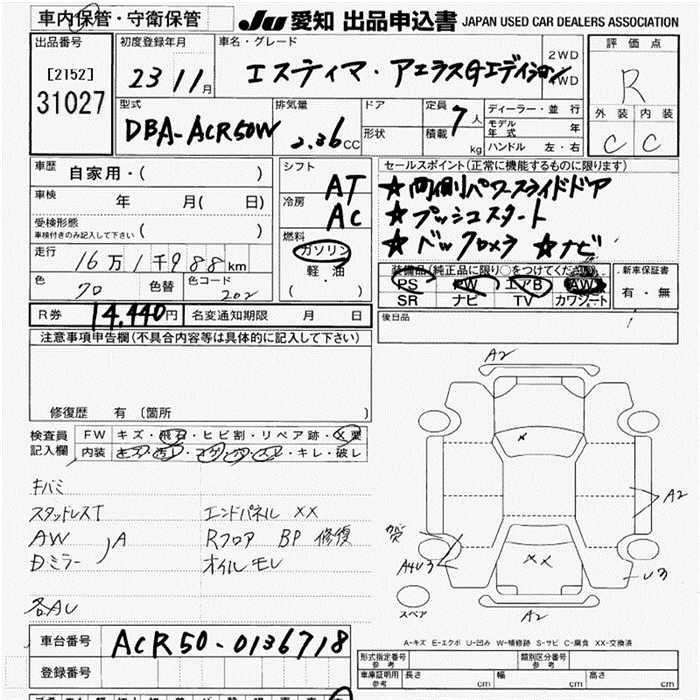 車内保管・守衛保管
JU 愛知 出品申込書 JAPAN USED CAR DEALERS ASSOCIATION
出品番号
[2152]
31027
初度登録年月
23 11月
車名・グレード
エスティマ・アエラスGエディション
2WD
4WD
評価点
R
外装 内装
C C
型式
DBA-ACR50W
排気量
2.36CC
ドア
形状
定員
7人
積載
kg
ディーラー・並行
モデル年式 年
ハンドル 左・右
車歴
自家用・( )
車検
年 月( 日)
受検形態
車検付きのみ記入して下さい ( )
走行
16万1千988km
色
クロ
色替
色コード
202
シフト
AT
冷房
AC
燃料
ガソリン
軽油
( ・ )
セールスポイント(正常に機能するものに限ります)
★両側パワースライドドア
★プッシュスタート
★バックカメラ ★ナビ
装備品(純正品に限り○をつけてください)
PS PW エアB AW
SR ナビ TV カワシート
新車保証書
有・無
後日品
R券 14,440円
名変通知期限 月 日
注意事項申告欄(不具合内容等は具体的に記入して下さい)
修復歴 有 (箇所 )
検査員記入欄
FW キズ・飛石・ヒビ割・リペア跡・X要
内装 キズ・汚レ・コゲ・穴・スレ・キレ・破レ
キバミ
スタッドレスT
AW
Dミラー )A
各AU
エンドパネル XX
Rフロア BP 修復
オイルモレ
A2
X
A2
A4U3
XX
U3
スペア
A2
A-キズ E-エクボ U-凹み W-補修跡 S-サビ C-腐食 XX-交換済
車台番号
ACR50-0136718
登録番号
形式指定番号 参考
類別区分番号 参考
車庫証明用 参考
長さ cm
幅 cm
高さ cm